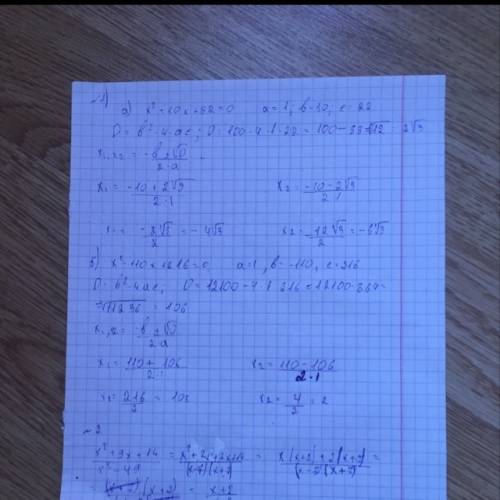 ~1)
а) x² - 10x + 22 = 0 a = 1; b = 10; c = 22
D = b² - 4·ac; D = 100 - 4·1·22 = 100 - 88 = √12 2√3
x₁,x₂ = -b ± √D / 2·a
x₁ = -10 + 2√3 / 2·1 x₂ = -10 - 2√3 / 2·1
= -4√3 x₂ = -12√3 / 2 = -6√3
б) x² - 110x + 216 = 0, a = 1, b = -110, c = 216
D = b² - 4ac, D = 12100 - 4·1·216 = 12100 - 864 =
= √11236 = 106
x₁,₂ = -b ± √D / 2·a
x₁ = 110 + 106 / 2·1 x₂ = 110 - 106 / 2·1
x₁ = 216 / 2 = 108 x₂ = 4 / 2 = 2
~2
x² + 9x + 14 / x² - 49 = x² + 7x + 2x + 14 / (x-7)(x+7) = x(x+7) + 2(x+7) / (x-7)(x+7) =